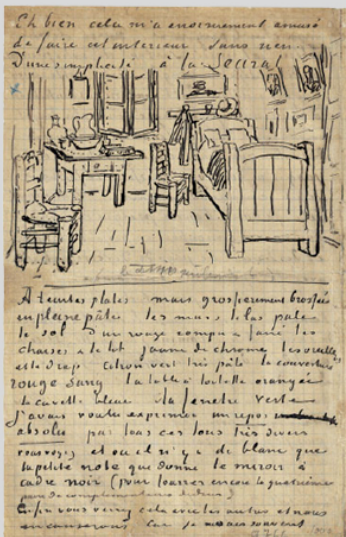 Eh bien cela m'a enormement amusé
de faire cet interieur sans rien.
D'une simplicité à la Seurat
A teintes plates mais grossierement brossées
en pleine pâte les murs lilas pale
le sol d'un rouge rompu & fané les
chaises & le lit jaune de chrome les oreillers
et le drap citron vert très pâle la couverture
rouge sang la table à toilette orangée
la cuvette bleue la fenetre verte
J'avais voulu exprimer un repos
absolu par tous ces tons très divers
vous voyez et où il n'y a de blanc que
la petite note que donne le miroir à
cadre noir (pour fourrer encore la quatrième
paire de complementaires dedans)
Enfin vous verrez cela avec les autres et nous
en causerons car je ne sais souvent